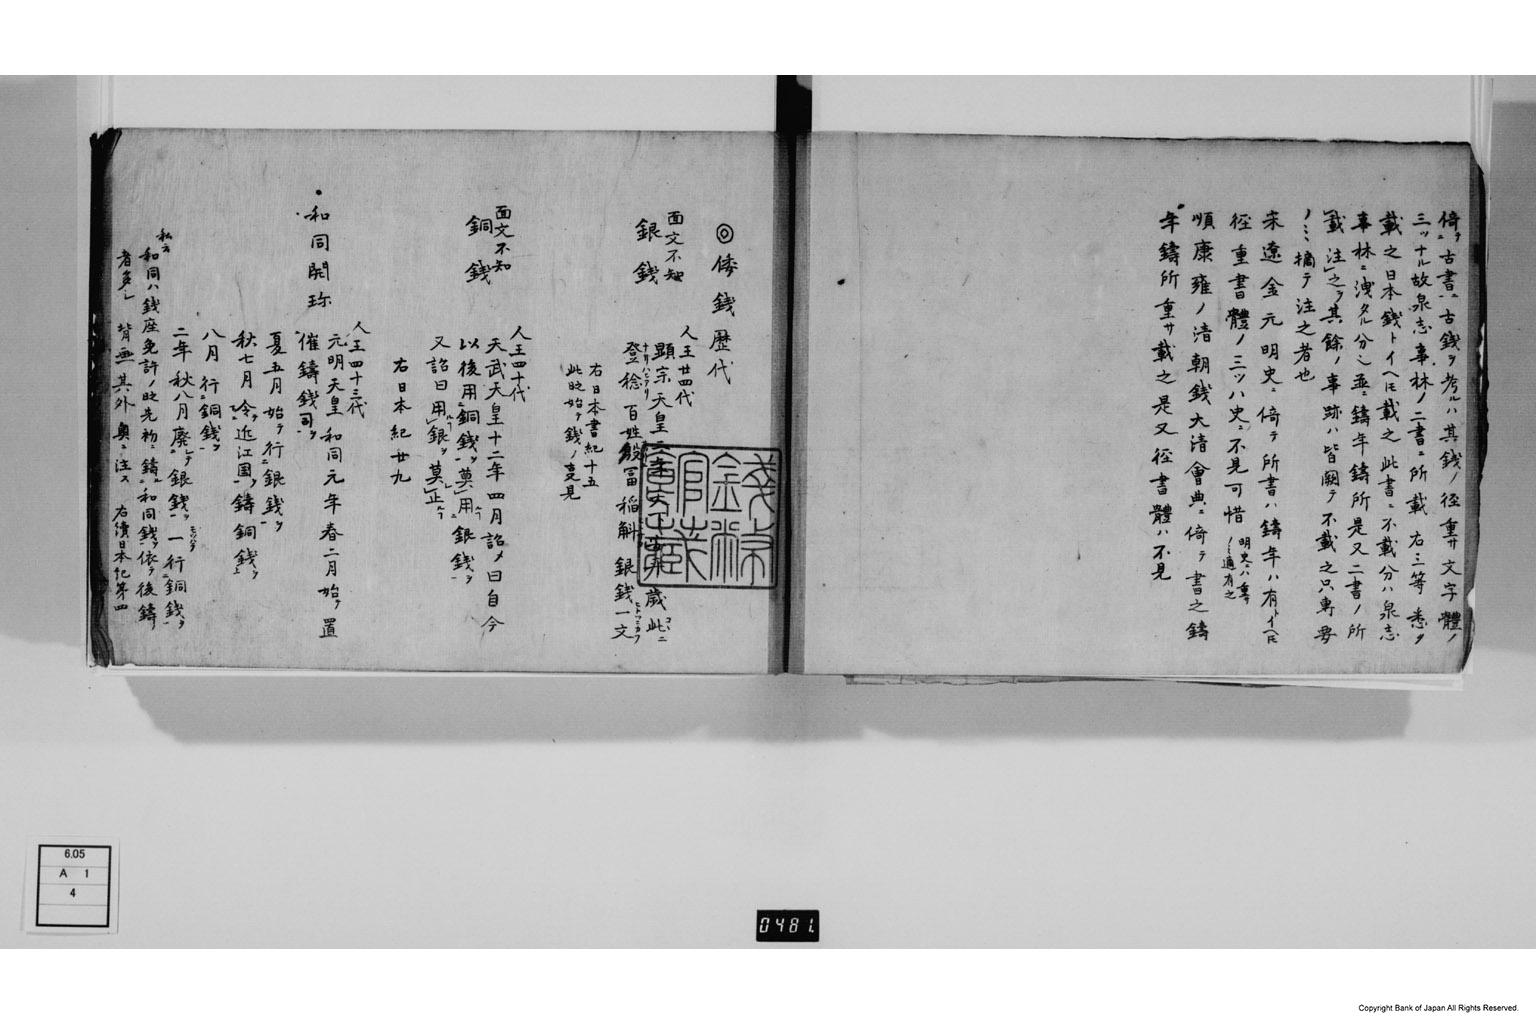 倚テ古書ニ古錢ヲ考ルハ其錢ノ径重サ文字體ノ
三ツナル故泉志事林ノ二書ニ所載右三等悉ク
載之日本錢トイヘ𪜈載之此書ニ不載分ハ泉志
事林ニ洩タル分ニ並ニ鑄年鑄所是又二書ノ所
載注之ヲ其餘ノ事跡ハ皆闕テ不載之只專要
ノミ摘テ注之者也
宋遼金元明史ニ倚テ所書ハ鑄年ハ有トイヘ𪜈
径重書體ノ三ツハ史ニ不見可惜
明史ニハ重サ
ノミ適有之
順康雍ノ清朝錢大清會典ニ倚テ書之鑄
年鑄所重サ載之是又径書體ハ不見
◎倭錢歴代
面文不知
銀錢
人王廿四代
顯宗天皇二年 歳此コヽニ
登稔百姓殷富稻斛銀錢一文
右日本書紀十五
此時始テ錢ノ夏見
面文不知
銅錢
人王四十代
天武天皇十二年四月詔メ曰自今
以後用銅錢ヲ莫用銀錢ヲ
又詔曰用銀ヲ莫止
右日本紀廿九
和同開珎
人王四十三代
元明天皇和同元年春二月始テ置
催鑄錢司ヲ
夏五月始テ行銀錢ヲ
秋七月令近江国鑄銅錢ヲ
八月行銅錢ヲ
二年秋八月廢銀錢一行銅錢ヲ
私云
和同ハ錢座免許ノ時先初ニ鑄和同錢ヲ依テ後鑄
者多シ 背無其外奥ニ注ス 右續日本紀第四
6.05
A 1
4
0481.
Copyright Bank of Japan All Rights Reserved.